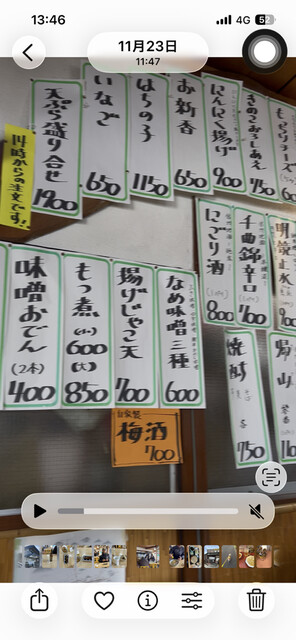 13:46
4G 52
11月23日
11:47
もっちりチーズ
きのこおろしあえ
750
にんにく揚げ
900
お新香
650
はちの子
1150
いなご
650
天ぷら盛り合せ
1900
14時からの注文です!
明鏡止水
千曲錦辛口
700
にごり酒
800
なめ味噌三種
600
揚げじゃこ天
700
もつ煮
(小)
600
(大)
850
味噌おでん
(2本)
400
焼酎
750
自家製
梅酒
700